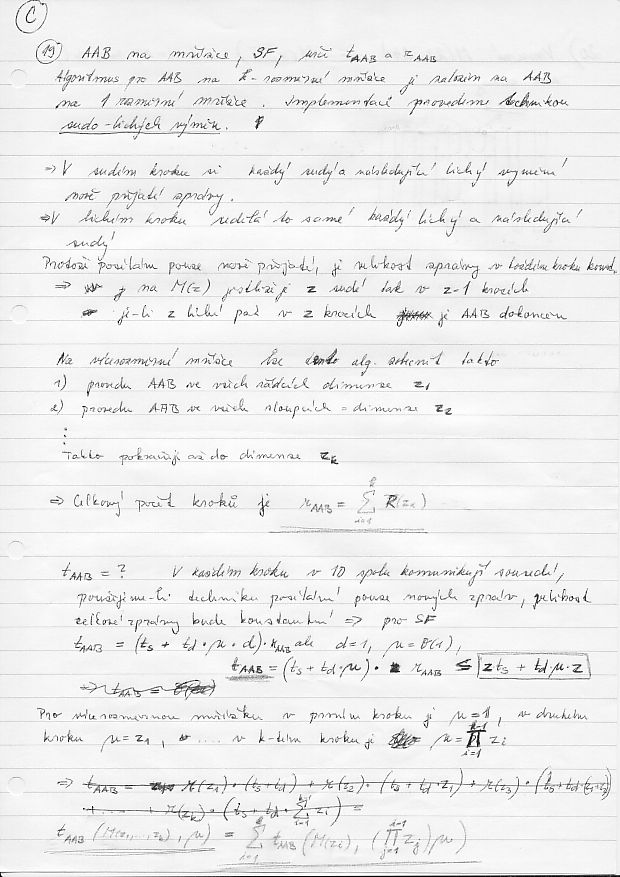 C
19) AAB na mřížce, SF, urči t_AAB a r_AAB
Algoritmus pro AAB na k-rozměrné mřížce je založen na AAB
na 1 rozměrné mřížce. Implementaci provedeme technikou
sudo-lichých výměn.
⇒ V sudém kroku si každý sudý a následující lichý vymění
nově přijaté zprávy.
⇒ V lichém kroku udělá to samé každý lichý a následující
sudý
Protože posílám pouze nově přijaté, je velikost zprávy v každém kroku konst.
⇒ na M(z) jestliže je z sudé tak v z-1 krocích
je-li z liché pak v z krocích je AAB dokončen
Na vícerozměrné mřížce lze alg. zobecnit takto
1) provedu AAB ve všech řádcích dimenze z_1
2) provedu AAB ve všech sloupcích = dimenze z_2
⋮
Takto pokračuji až do dimenze z_k
⇒ Celkový počet kroků je r_AAB = ∑_{i=1}^{k} R(z_i)
t_AAB = ? V každém kroku v 1D spolu komunikují sousedé,
použijeme-li techniku posílání pouze nových zpráv, velikost
celkové zprávy bude konstantní ⇒ pro SF
t_AAB = (t_s + t_d · μ · d) · r_AAB ale d=1, μ = Θ(1),
t_AAB = (t_s + t_d · μ) · r_AAB ≤ z t_s + t_d · μ · z
⇒ t_AAB =
Pro vícerozměrnou mřížku v prvním kroku je μ=1, v druhém
kroku μ = z_1, ... v k-tém kroku je μ = ∏_{i=1}^{k-1} z_i
⇒ t_AAB = r(z_1) · (t_s + t_d) + r(z_2) · (t_s + t_d · z_1) + r(z_3) · (t_s + t_d · (z_1·z_2))
+ ... + r(z_k) · (t_s + t_d · ∑_{i=1}^{k-1} z_i) =
t_AAB (M(z_1,...,z_k), μ) = ∑_{i=1}^{k} t_AAB (M(z_i), (∏_{j=1}^{i-1} z_j) μ)